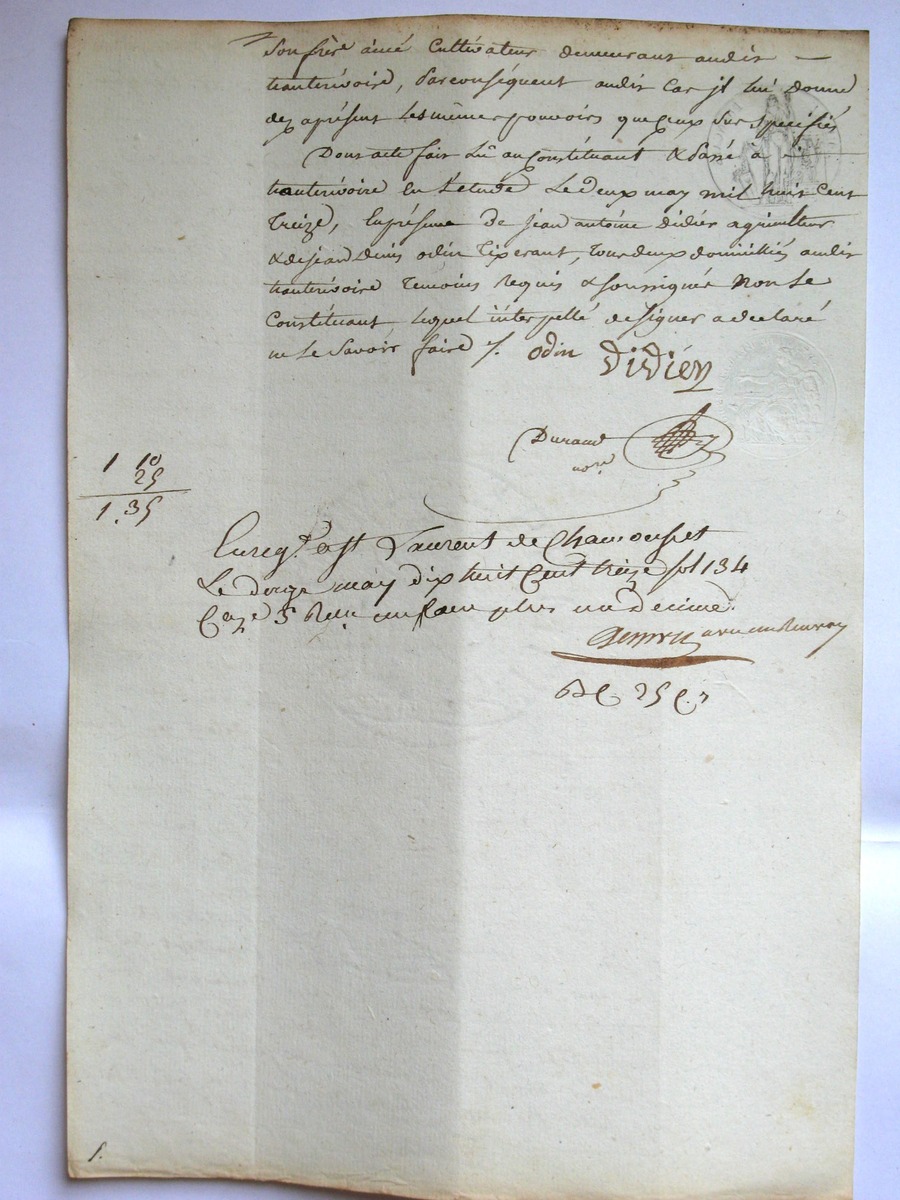 Son frère ainé Cultivateur demeurant audit
hauterivoire, Par conséquent audit Cas jl lui donne
dez aprésent les mêmes pouvoirs que ceux sus specifiés
Dont acte fait Lû au Constituant & Passé à
hauterivoire En L'etude Le deux may mil huit Cent
Treize, En présence De jean antoine didier agriculteur
& de jean Denis odin Tixerant, Tous deux domiciliés audit
hauterivoire Temoins Requis & soussignés Non Le
Constituant lequel interpellé de signer a declaré
ne Le Savoir faire /. odin didiér
Durand
nore
1 10
25
1.35
Enregt. a st Laurent de Chamousset
Le douze may dix huit Cent treize fol 134
Caze 5 Reçu un franc plus un décime.
25 C.
1.